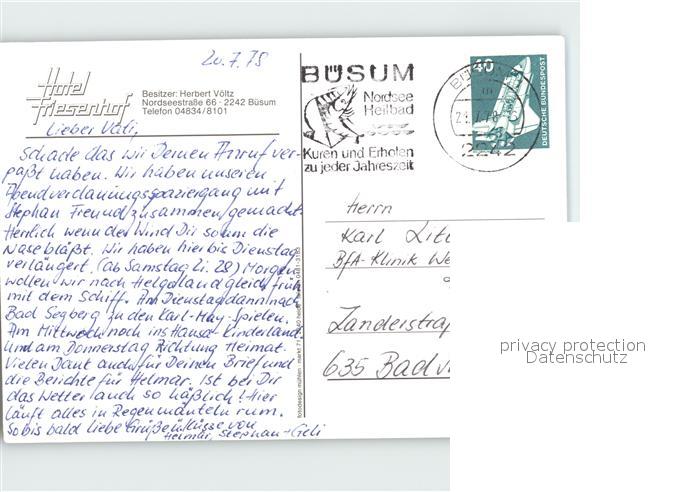 20.7.78
Hotel
Friesenhof
Besitzer: Herbert Völtz
Nordseestraße 66 · 2242 Büsum
Telefon 04834/8101
BÜSUM
Nordsee
Heilbad
Kuren und Erholen
zu jeder Jahreszeit
2242
40
DEUTSCHE BUNDESPOST
Lieber Vati,
Schade das wir Deinen Anruf ver-
paßt haben. Wir haben unseren
Abendverdauungsspaziergang mit
Stephan Freund zusammen gemacht.
Herrlich wenn der Wind Dir so um die
Nase bläßt. Wir haben hier bis Dienstag
verlängert. (ab Samstag Zi. 28) Morgen
wollen wir nach Helgoland gleich früh
mit dem Schiff. Am Dienstag dann nach
Bad Segberg zu den Karl-May-Spielen.
Am Mittwoch noch ins Hansa-Kinderland
Und am Donnerstag Richtung Heimat.
Vielen Dank auch für Deinen Brief und
die Berichte für Helmar. Ist bei Dir
das Wetter auch so häßlich! Hier
läuft alles in Regenmänteln rum.
So bis bald liebe Grüße u. Küsse von
Helmar, Stephan + Geli
Herrn
Karl
BfA-Klinik We
Zanderstraß
635 Bad
fotodesign mühlen
privacy protection
Datenschutz